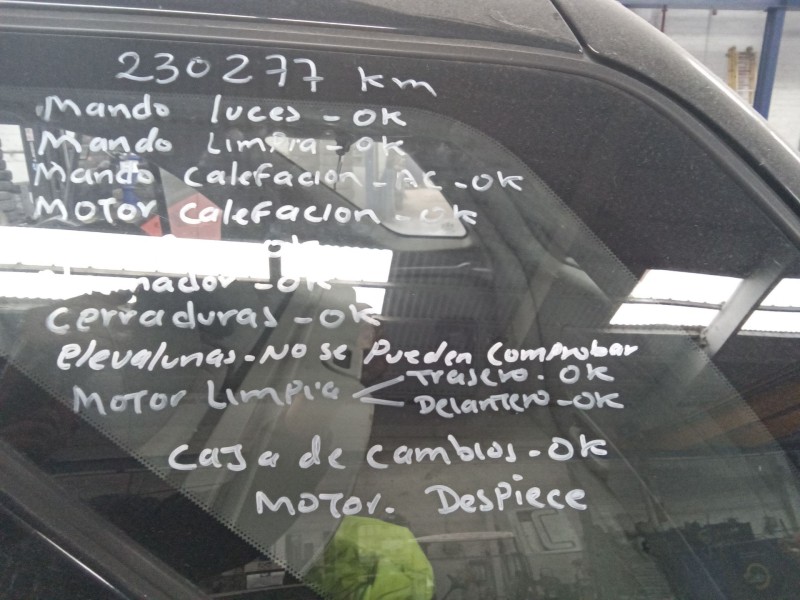 230277 km
Mando luces - OK
Mando Limpia - OK
Mando Calefacion - AC - OK
MOTOR Calefacion - OK
OK
- OK
Cerraduras - OK
elevalunas - NO se Pueden Comprobar
MOTOR Limpia
Trasero. OK
Delantero - OK
Caja de cambios - OK
MOTOR. Despiece